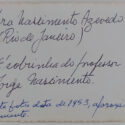 Nascimento Azevedo
(Rio de Janeiro)
Sobrinha do Professor
Jorge Nascimento.
foto data de 1953,